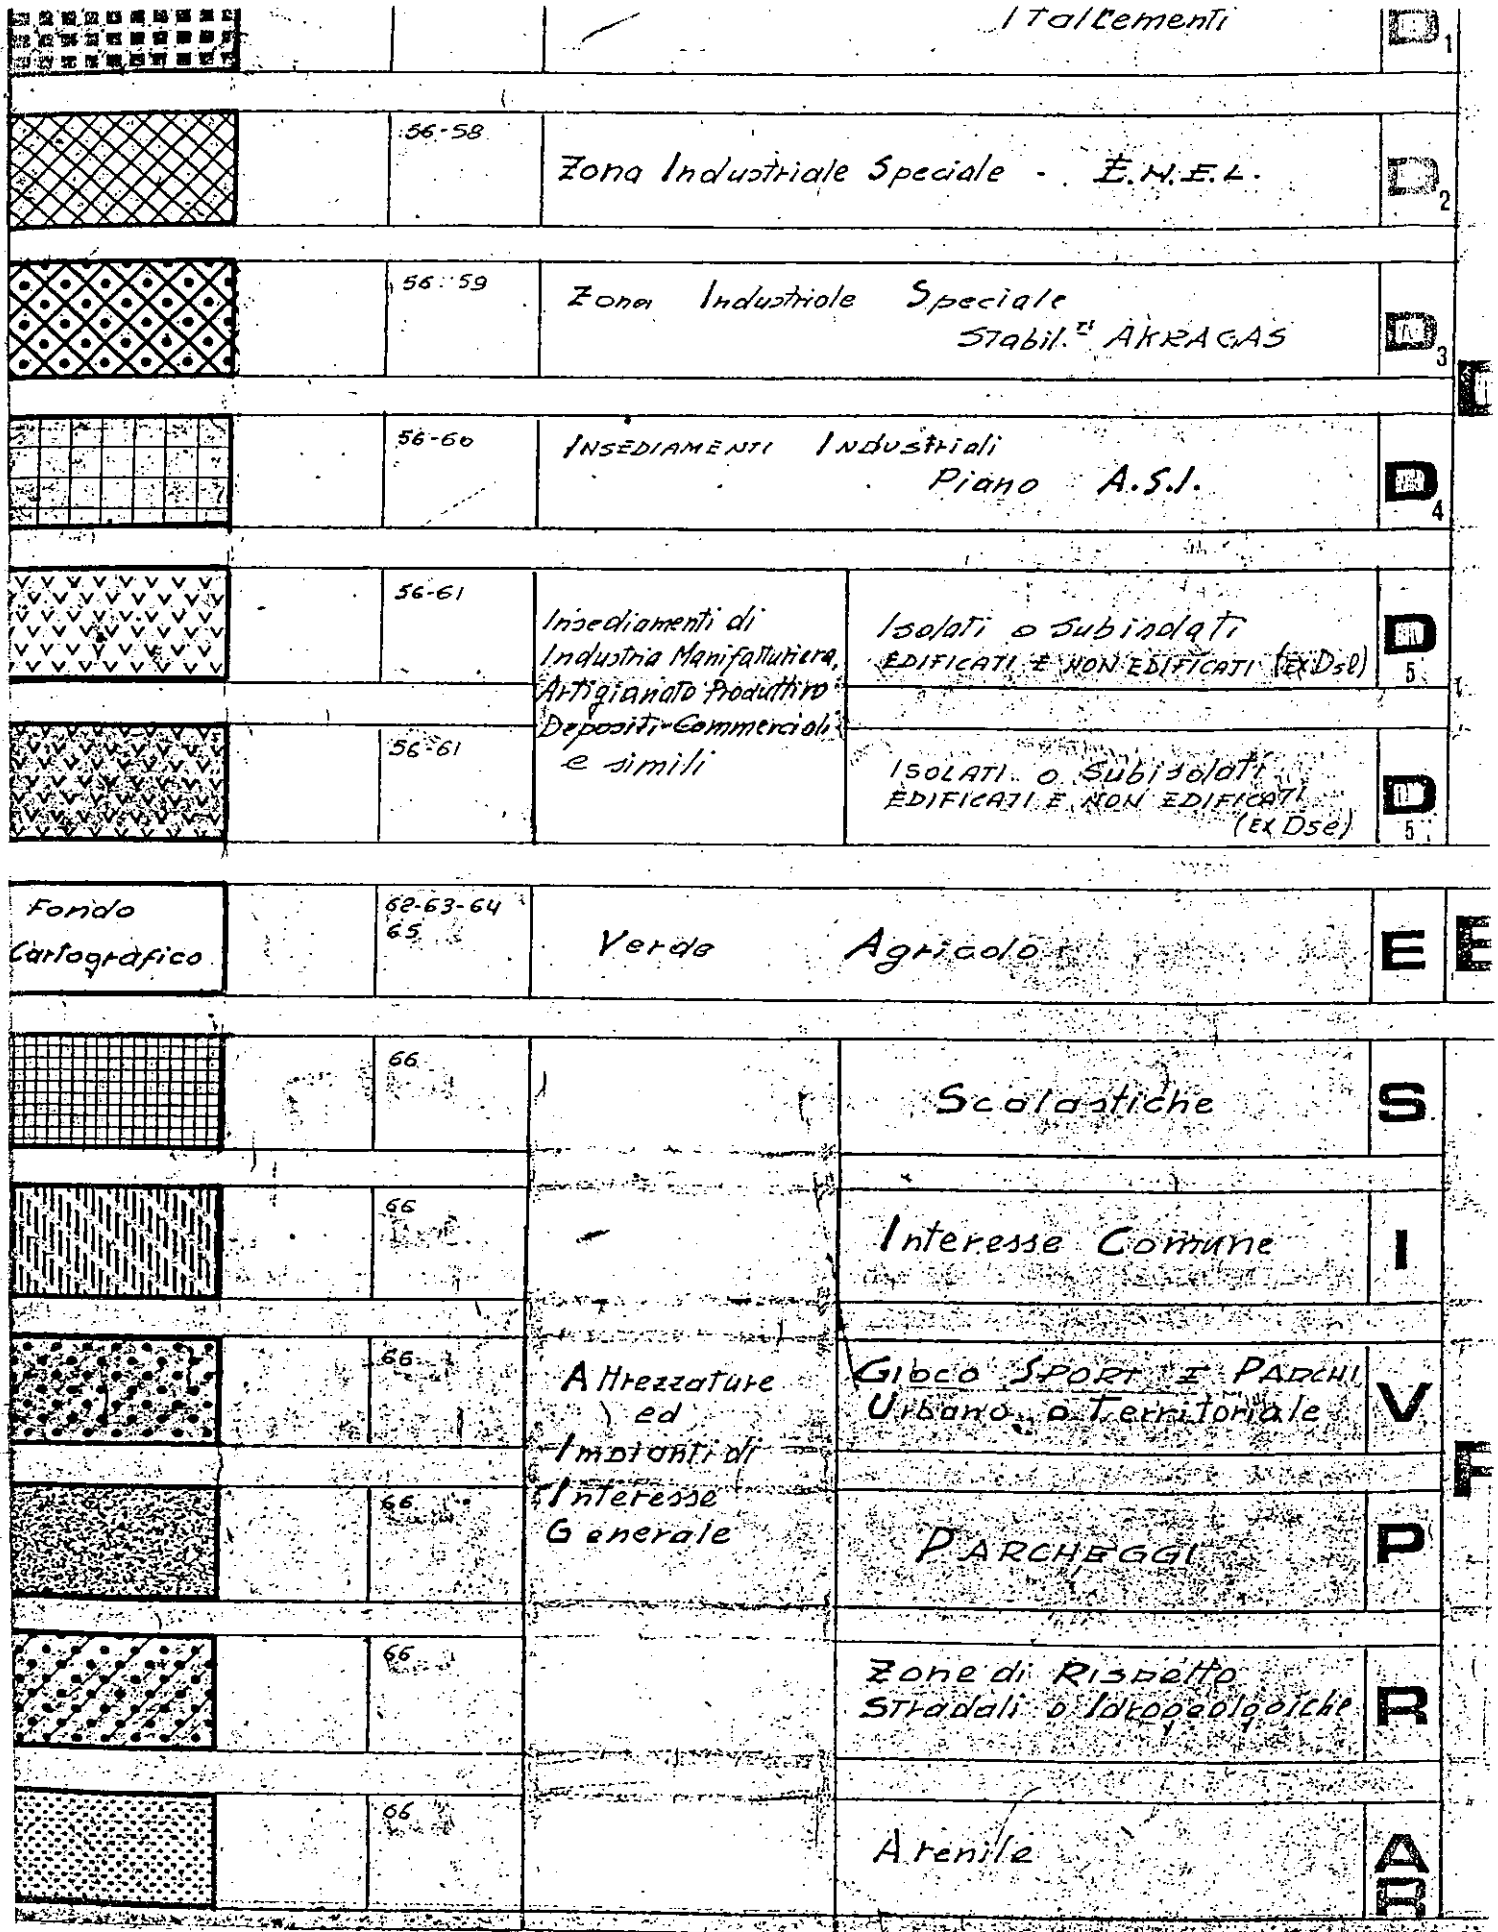 Italcementi D1
56-58
Zona Industriale Speciale - E.N.E.L. D2
56-59
Zona Industriale Speciale
Stabil.ti AKRAGAS D3
D
56-60
INSEDIAMENTI Industriali
Piano A.S.I. D4
56-61
Insediamenti di
Industria Manifatturiera,
Artigianato Produttivo
Depositi-Commerciali
e simili
Isolati o Subisolati
EDIFICATI E NON EDIFICATI (EX Dsl) D5
56-61
ISOLATI o Subisolati
EDIFICATI E NON EDIFICATI
(EX Dse) D5
Fondo
Cartografico
62-63-64
65
Verde Agricolo E E
66
Scolastiche S
66
Interesse Comune I
66
Attrezzature
ed
Impianti di
Interesse
Generale
GIOCO SPORT E PARCHI
Urbano o Territoriale V
F
66
PARCHEGGI P
66
Zone di Rispetto
Stradali o Idrogeologoiche R
66
Arenile AR